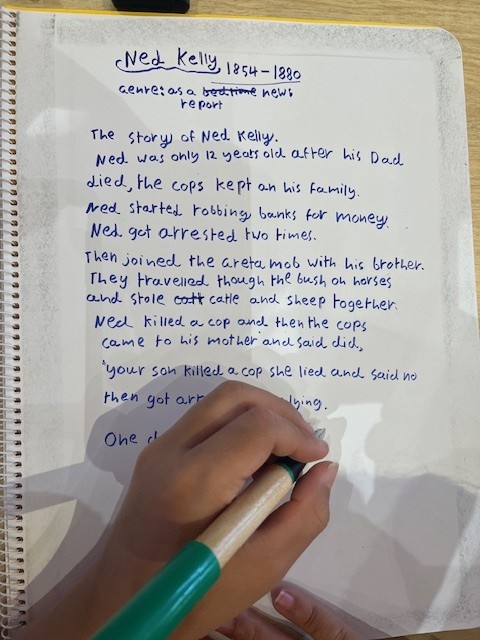 Ned Kelly 1854-1880
Genre: as a bedtime news
report
The story of Ned Kelly.
Ned was only 12 years old after his Dad
died, the cops kept an his family.
Ned started robbing banks for money.
Ned got arrested two times.
Then joined the Greta mob with his brother.
They travelled though the bush on horses
and stole catt catle and sheep together.
Ned killed a cop and then the cops
came to his mother and said did,
"your son killed a cop she lied and said no
then got arr
One d